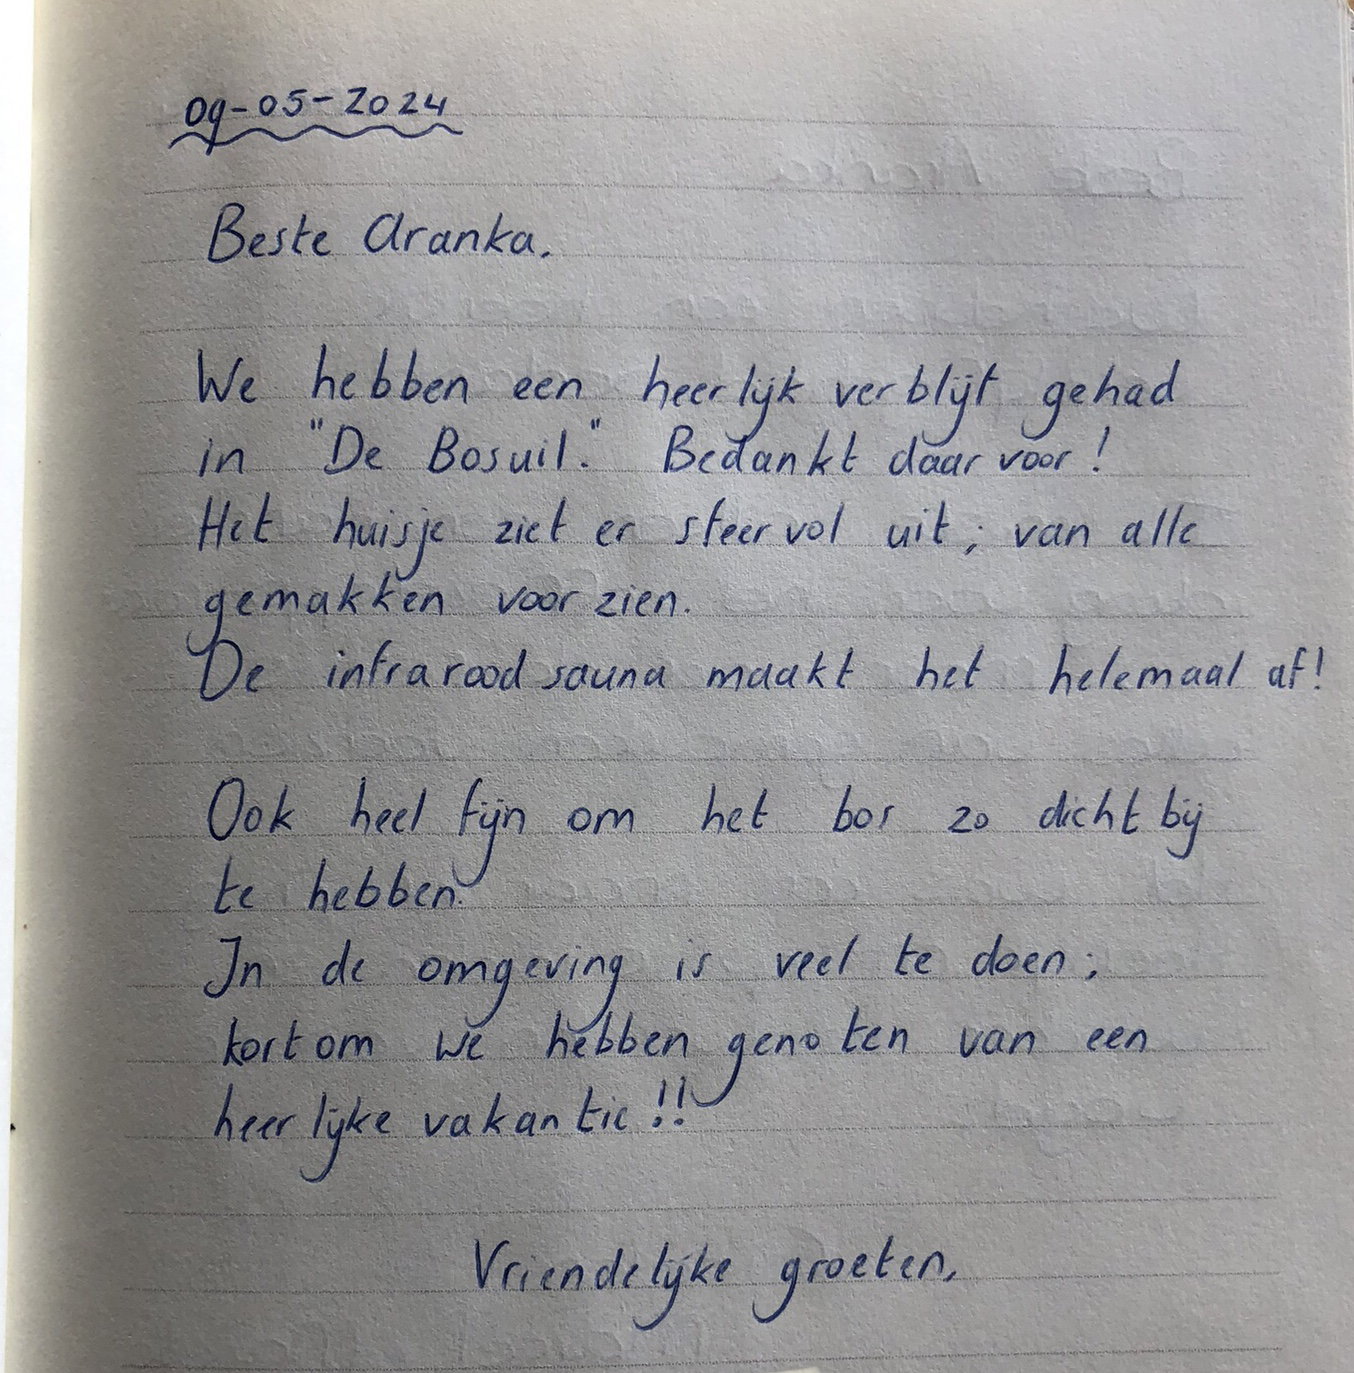 09-05-2024
Beste Aranka,
We hebben een heerlijk verblijf gehad
in "De Bosuil." Bedankt daarvoor!
Het huisje ziet er sfeervol uit; van alle
gemakken voorzien.
De infrarood sauna maakt het helemaal af!
Ook heel fijn om het bos zo dichtbij
te hebben.
In de omgeving is veel te doen;
kortom we hebben genoten van een
heerlijke vakantie!!
Vriendelijke groeten,